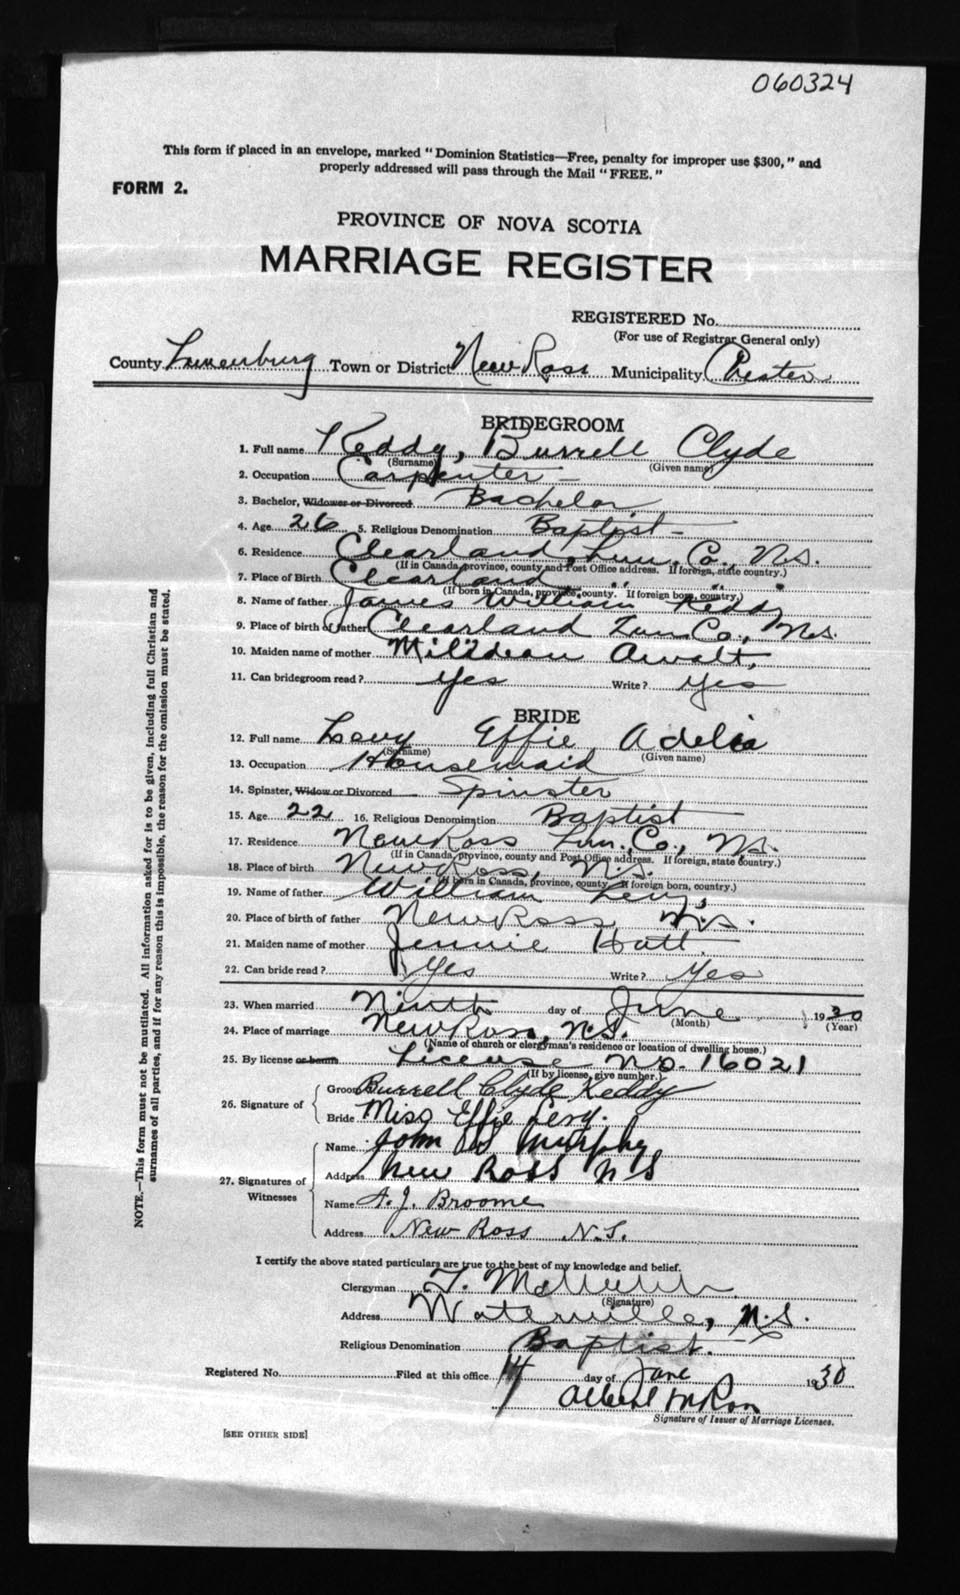 060324
This form if placed in an envelope, marked "Dominion Statistics—Free, penalty for improper use $300," and
properly addressed will pass through the Mail "FREE."
FORM 2.
PROVINCE OF NOVA SCOTIA
MARRIAGE REGISTER
REGISTERED No.
(For use of Registrar General only)
County Lunenburg Town or District New Ross Municipality Chester
BRIDEGROOM
1. Full name Keddy, Burrell Clyde
(Surname) (Given name)
2. Occupation Carpenter -
3. Bachelor, Widower or Divorced Bachelor
4. Age 26 5. Religious Denomination Baptist -
6. Residence Clearland, Lun. Co., N.S.
(If in Canada, province, county and Post Office address. If foreign, state country.)
7. Place of Birth Clearland " " "
(If born in Canada, province, county. If foreign born, country.)
8. Name of father James William Keddy
9. Place of birth of father Clearland Lun Co., N.S.
10. Maiden name of mother Awalt,
11. Can bridegroom read? yes Write? yes
BRIDE
12. Full name Levy Effie Adelia
(Surname) (Given name)
13. Occupation Housemaid
14. Spinster, Widow or Divorced Spinster
15. Age 22 16. Religious Denomination Baptist
17. Residence New Ross Lun. Co., N.S.
(If in Canada, province, county and Post Office address. If foreign, state country.)
18. Place of birth New Ross, N.S.
(If born in Canada, province, county. If foreign born, country.)
19. Name of father William Levy
20. Place of birth of father New Ross N.S.
21. Maiden name of mother Jennie Hatt
22. Can bride read? Yes Write? Yes
23. When married Ninth day of June 1930
(Month) (Year)
24. Place of marriage New Ross, N.S.
(Name of church or clergyman's residence or location of dwelling house.)
25. By license or banns License No. 16021
(If by license, give number.)
26. Signature of
Groom Burrell Clyde Keddy
Bride Miss Effie Levy.
27. Signatures of Witnesses
Name John Murphy
Address New Ross N S
Name A. J. Broome
Address New Ross N.S.
I certify the above stated particulars are true to the best of my knowledge and belief.
Clergyman
(Signature)
Address Waterville, N.S.
Religious Denomination Baptist.
Registered No. Filed at this office 14 day of June 1930
Albert
Signature of Issuer of Marriage Licenses.
[SEE OTHER SIDE]
NOTE.—This form must not be mutilated. All information asked for is to be given, including full Christian and
surnames of all parties, and if for any reason this is impossible, the reason for the omission must be stated.